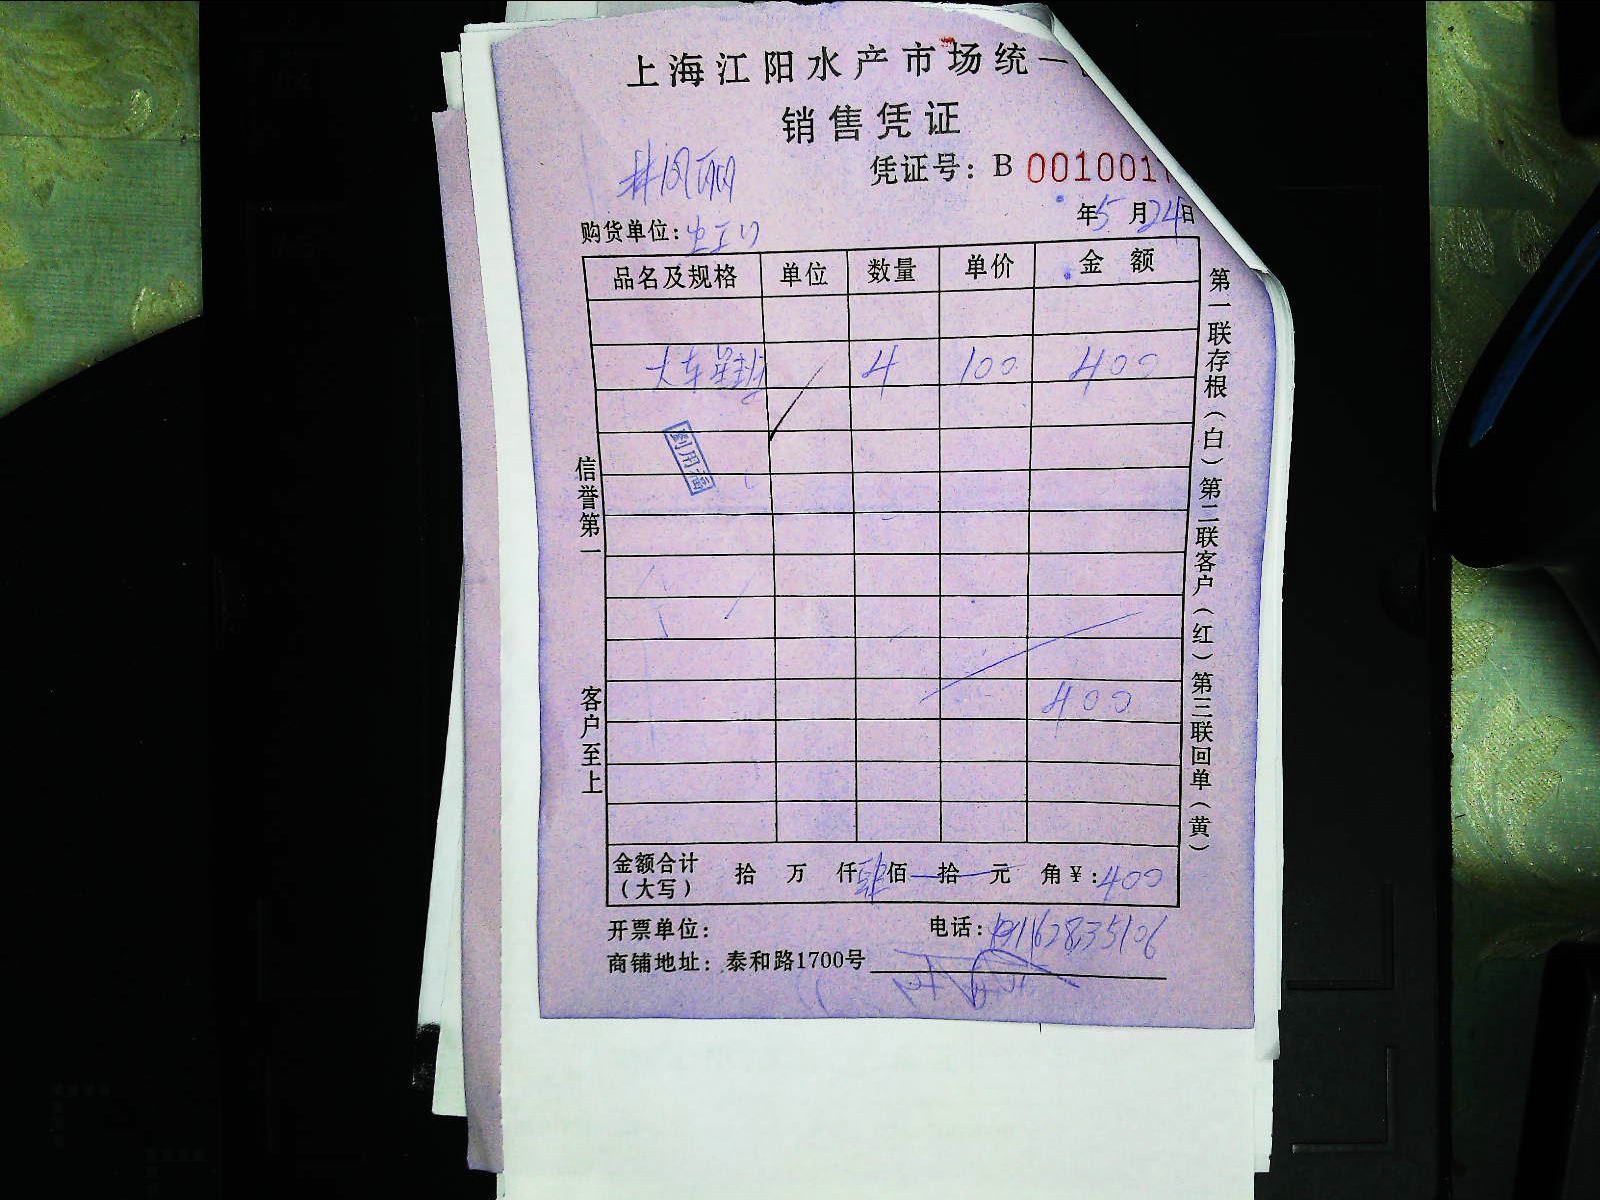 上海江阳水产市场统一
销售凭证
凭证号：B 001001
年5月24日
购货单位：
品名及规格 单位 数量 单价 金额
大车 4 100 400
400
金额合计（大写） 拾 万 仟肆佰 拾 元 角￥：400
开票单位：
电话：
商铺地址：泰和路1700号
信誉第一
客户至上
第一联存根（白）第二联客户（红）第三联回单（黄）